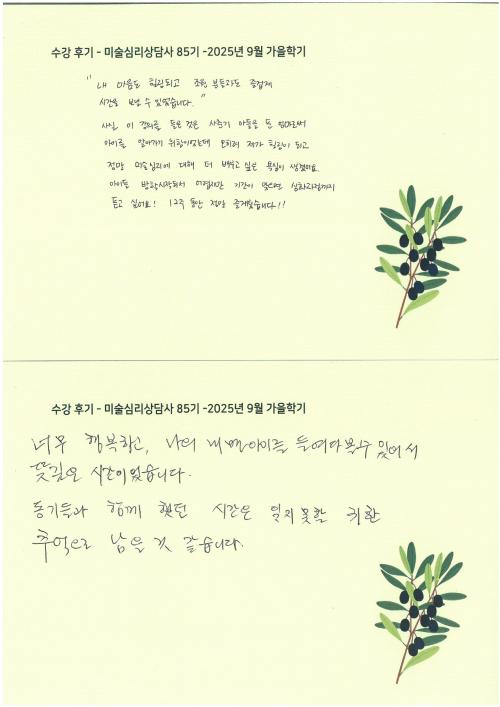 수강 후기 - 미술심리상담사 85기 -2025년 9월 가을학기
"내 마음도 힐링되고 조원분들과도 즐겁게
시간을 보낼 수 있었습니다."
사실 이 강의를 들은 것은 사춘기 아들을 둔 엄마로써
아이를 알아가기 위함이었는데 오히려 제가 힐링이 되고
정말 미술심리에 대해 더 배우고 싶은 욕심이 생겼어요.
아이들 방학시작되서 어렵지만 기간이 맞으면 심화과정까지
듣고 싶어요! 12주 동안 정말 즐거웠습니다!!
수강 후기 - 미술심리상담사 85기 -2025년 9월 가을학기
너무 행복하고, 나의 내면아이를 들여다볼수 있어서
뜻깊은 시간이었습니다.
동기들과 함께 했던 시간은 잊지못할 귀한
추억으로 남을 것 같습니다.